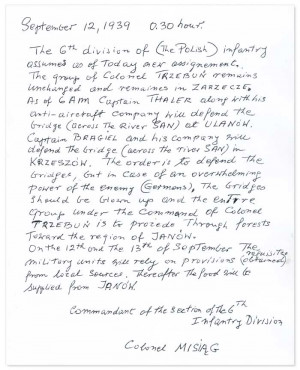 September 12, 1939   0.30 hour.
The 6th division of (The Polish) infantry
assumes as of Today new assignement.
The group of Colonel TRZEBUŃ remains
unchanged and remaines in ZARZECZE.
As of 6 AM Captain THALER along with his
anti-aircraft company will defend the
bridge (across the River SAN) at ULANÓW.
Captain BRAGIEL and his company will
defend the bridge (across the river SAN) in
KRZESZÓW. The order is to defend the
bridges, but in case of an overwhelming
power of the enemy (Germans), the bridges
should be blown up and the entire
group under the command of Colonel
TRZEBUŃ is to procede Through forests
toward the region of JANÓW.
On the 12th and the 13th of September the
military units will rely on provisions (obtained)
from local sources, thereafter the food will be
supplied from JANÓW.
Commandant of the section of the 6th
Infantry Division
Colonel MISIĄG